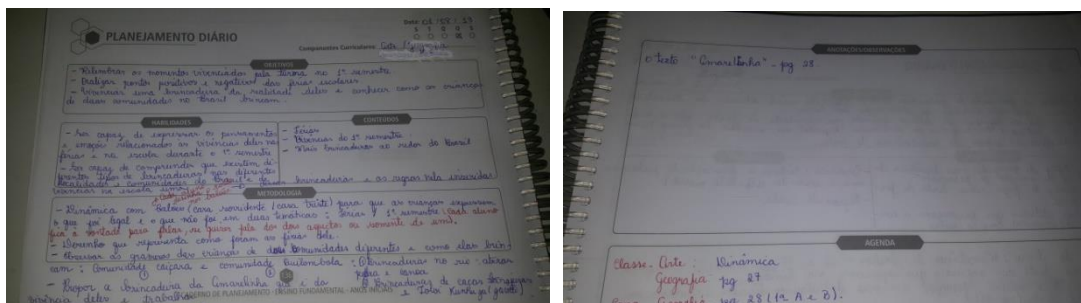 PLANEJAMENTO DIÁRIO
Data 03 / 08 / 23
S T Q Q S
Componentes Curriculares: Arte, Geografia
OBJETIVOS
- Relembrar os momentos vivenciados pela turma no 1º semestre
- Realizar pontos positivos e negativos das férias escolares
- Vivenciar uma brincadeira da realidade deles e conhecer como as crianças
de duas comunidades no Brasil brincam.
HABILIDADES
- Ser capaz de expressar os pensamentos
e emoções relacionados às vivências deles nas
férias e na escola durante o 1º semestre
- Ser capaz de compreender que existem di-
ferentes tipos de brincadeiras nas diferentes
localidades e comunidades do Brasil e
CONTEÚDOS
- Férias
- Vivências do 1º semestre
- brincadeiras ao redor do Brasil
vivenciar na escola uma brincadeiras e as regras nela inseridas
METODOLOGIA
- Dinâmica com balões (cara sorridente / cara triste) para que as crianças expressem
o que foi legal e o que não foi em duas temáticas: férias e 1º semestre (cada aluno
fica à vontade para falar, se quiser falar dos dois aspectos ou somente de um).
- Desenho que representa como foram as férias dele.
- Observar as gravuras das crianças de duas comunidades diferentes e como elas brin-
cam: Comunidade caiçara e comunidade quilombola
brincadeiras no rio: atirar
pedra e canoa
- Propor a brincadeira da Amarelinha que é da
deles e trabalhar
brincadeiras de caças
CADERNO DE PLANEJAMENTO - ENSINO FUNDAMENTAL - ANOS INICIAIS
ANOTAÇÕES/OBSERVAÇÕES
o texto "Amarelinha" - pg 28
AGENDA
Classe. Arte: Dinâmica
Geografia pg 27
pg 28 (1º A e B).